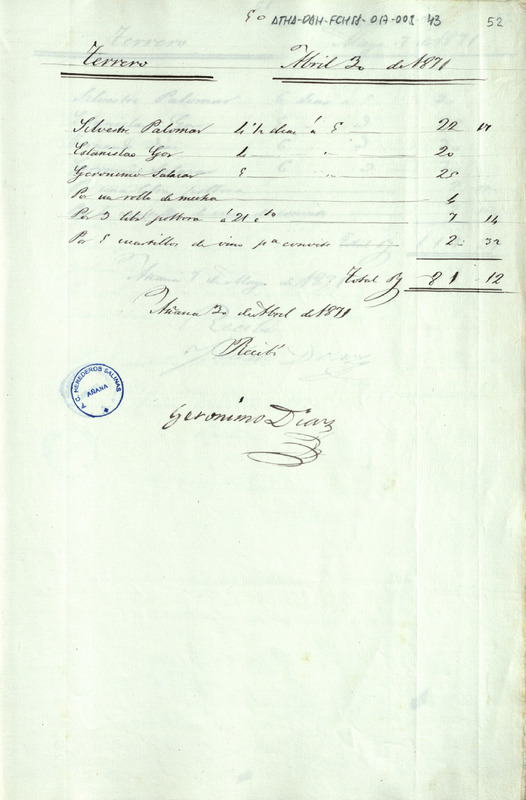 50 ATHA-DAH-FCHTS-017-008 43 52
Terrero Abril 30 de 1871
Silvestre Palomar 4 1/2 dias á 5 22 17
Estanislao Gor 4 " 20
Geronimo Salazar 5 " 25
Por un rollo de mecha 4
Por 3 libs polbora á 21 ctos 7 14
Por 5 cuartillos de vino pa convite 2 32
Total 81 12
Añana 30 de Abril de 1871
Recibi
Geronimo Diaz
C. HEREDEROS SALINAS
AÑANA